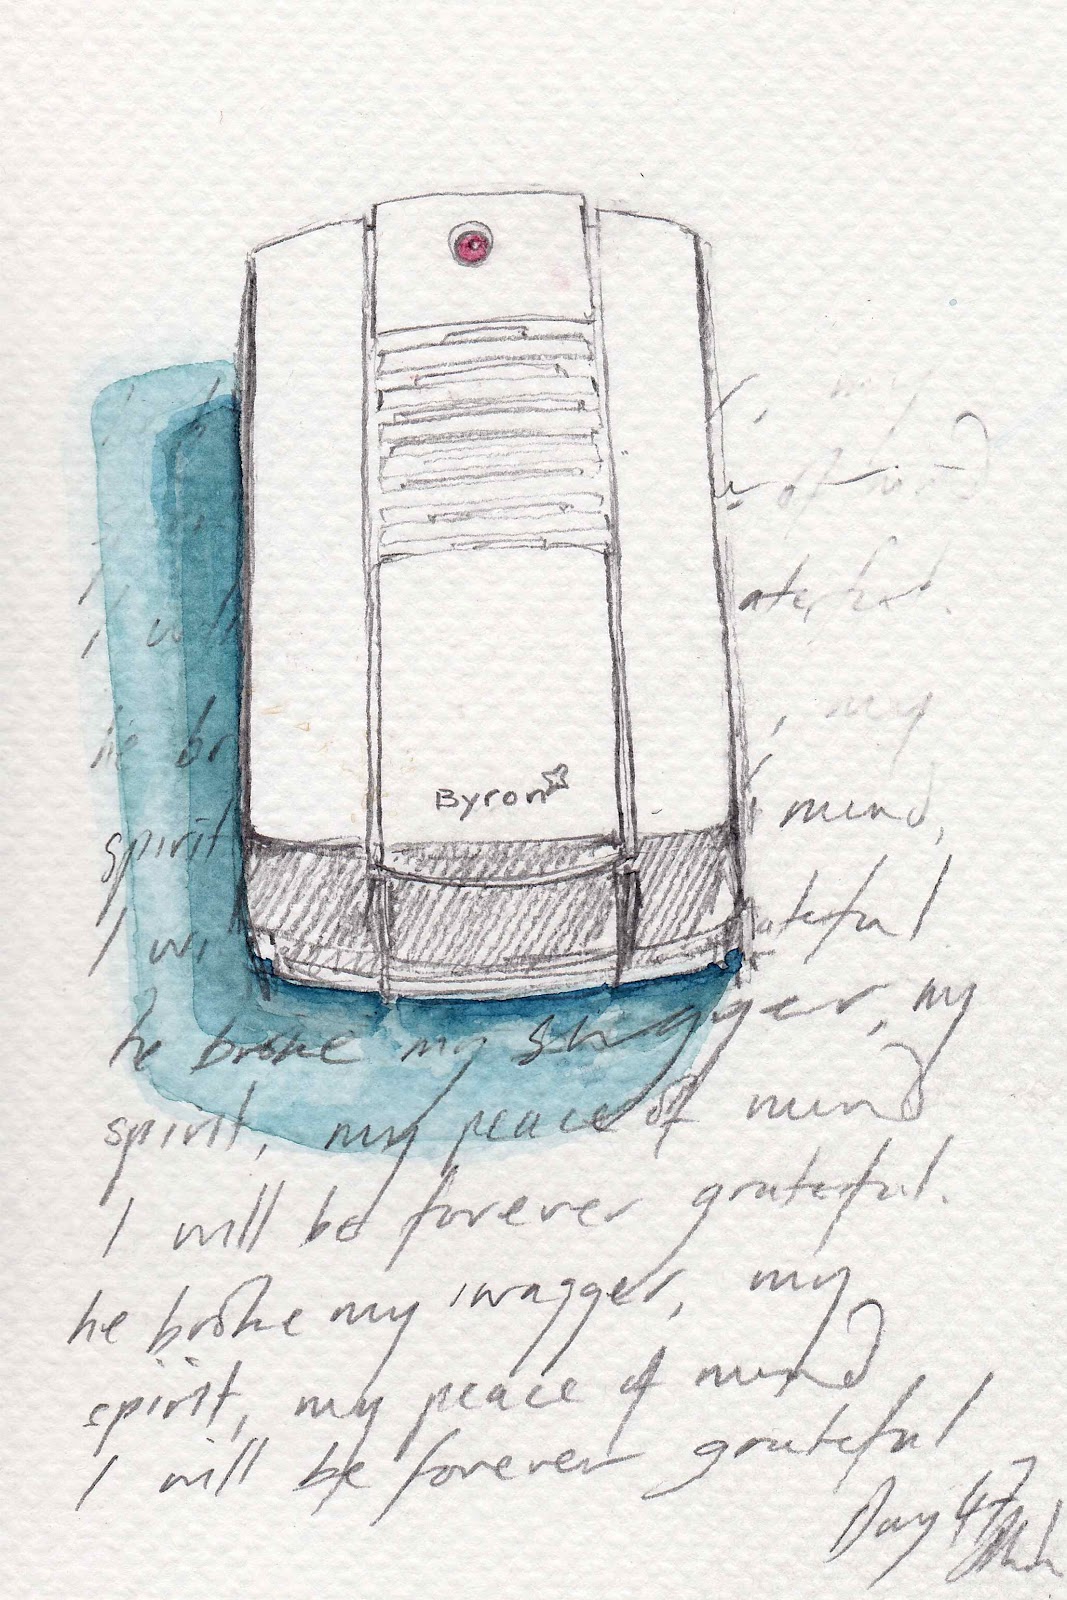 , my
of mind
I will ateful.
he br , my
Byron
spirit mind,
I wi ateful
he broke my swagger, my
spirit, my peace of mind
I will be forever grateful.
he broke my swagger, my
spirit, my peace of mind
I will be forever grateful
Day 47